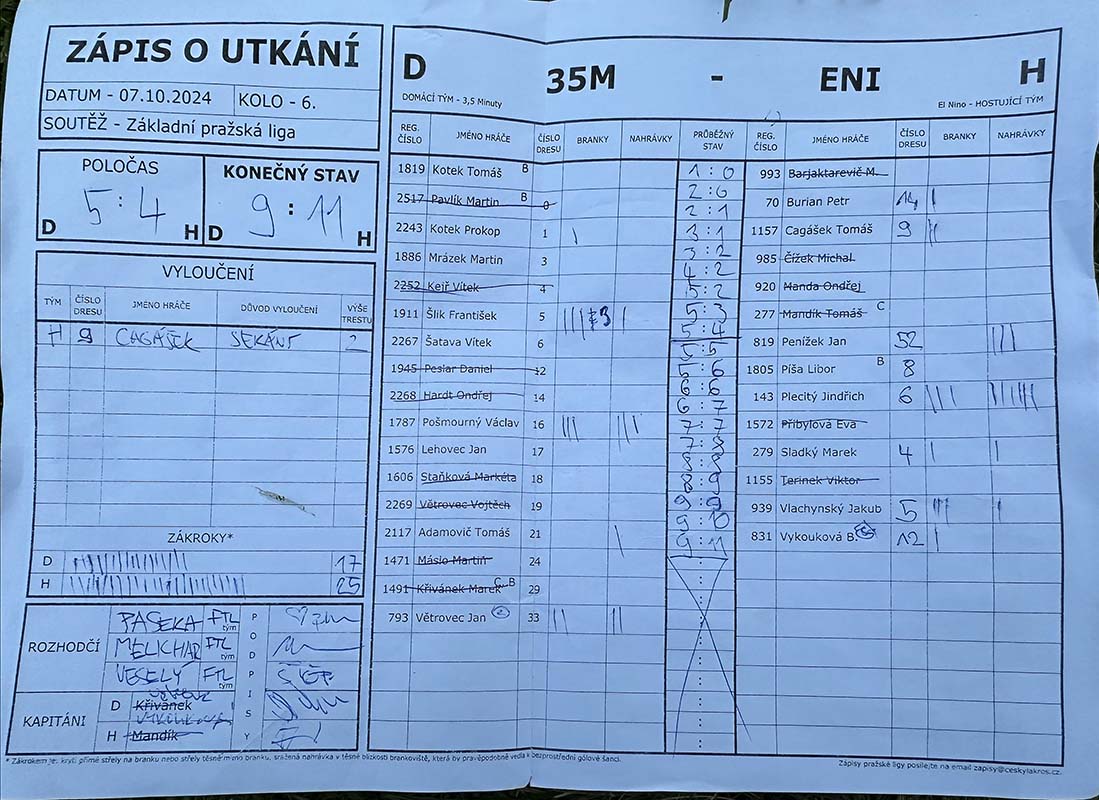 ZÁPIS O UTKÁNÍ
DATUM - 07.10.2024 KOLO - 6.
SOUTĚŽ - Základní pražská liga
POLOČAS
5 : 4
D H
KONEČNÝ STAV
9 : 11
D H
VYLOUČENÍ
TÝM ČÍSLO DRESU JMÉNO HRÁČE DŮVOD VYLOUČENÍ VÝŠE TRESTU
H 9 CAGÁŠEK SEKÁNÍ 2
ZÁKROKY*
D 17
H 25
ROZHODČÍ
PASEKA FTL tým
MELICHAR FTL tým
VESELÝ FTL tým
PODPISY
KAPITÁNI
D Křivánek
H Mandík
D 35M - ENI H
DOMÁCÍ TÝM - 3,5 Minuty El Nino - HOSTUJÍCÍ TÝM
REG. ČÍSLO JMÉNO HRÁČE ČÍSLO DRESU BRANKY NAHRÁVKY PRŮBĚŽNÝ STAV REG. ČÍSLO JMÉNO HRÁČE ČÍSLO DRESU BRANKY NAHRÁVKY
1819 Kotek Tomáš B
2517 Pavlík Martin B 0
2243 Kotek Prokop 1
1886 Mrázek Martin 3
2252 Kejř Vítek 4
1911 Šlik František 5
2267 Šatava Vítek 6
1945 Peslar Daniel 12
2268 Hardt Ondřej 14
1787 Pošmourný Václav 16
1576 Lehovec Jan 17
1606 Staňková Markéta 18
2269 Větrovec Vojtěch 19
2117 Adamovič Tomáš 21
1471 Máslo Martin 24
1491 Křivánek Marek C B 29
793 Větrovec Jan C 33
1 : 0
2 : 0
2 : 1
3 : 1
3 : 2
4 : 2
5 : 2
5 : 3
5 : 4
5 : 5
5 : 6
6 : 6
6 : 7
7 : 7
7 : 8
8 : 8
8 : 9
9 : 9
9 : 10
9 : 11
993 Barjaktarevič M.
70 Burian Petr 14
1157 Cagášek Tomáš 9
985 Čížek Michal
920 Manda Ondřej
277 Mandík Tomáš C
819 Penížek Jan 52
1805 Píša Libor B 8
143 Plecitý Jindřich 6
1572 Přibylová Eva
279 Sladký Marek 4
1155 Terinek Viktor
939 Vlachynský Jakub 5
831 Vykouková B. C 12
* Zákrokem je: krytí přímé střely na branku nebo střely těsně mimo branku, sražená nahrávka v těsné blízkosti brankoviště, která by pravěpodobně vedla k bezprostřední gólové šanci.
Zápisy pražské ligy posílejte na email zapisy@ceskylakros.cz.